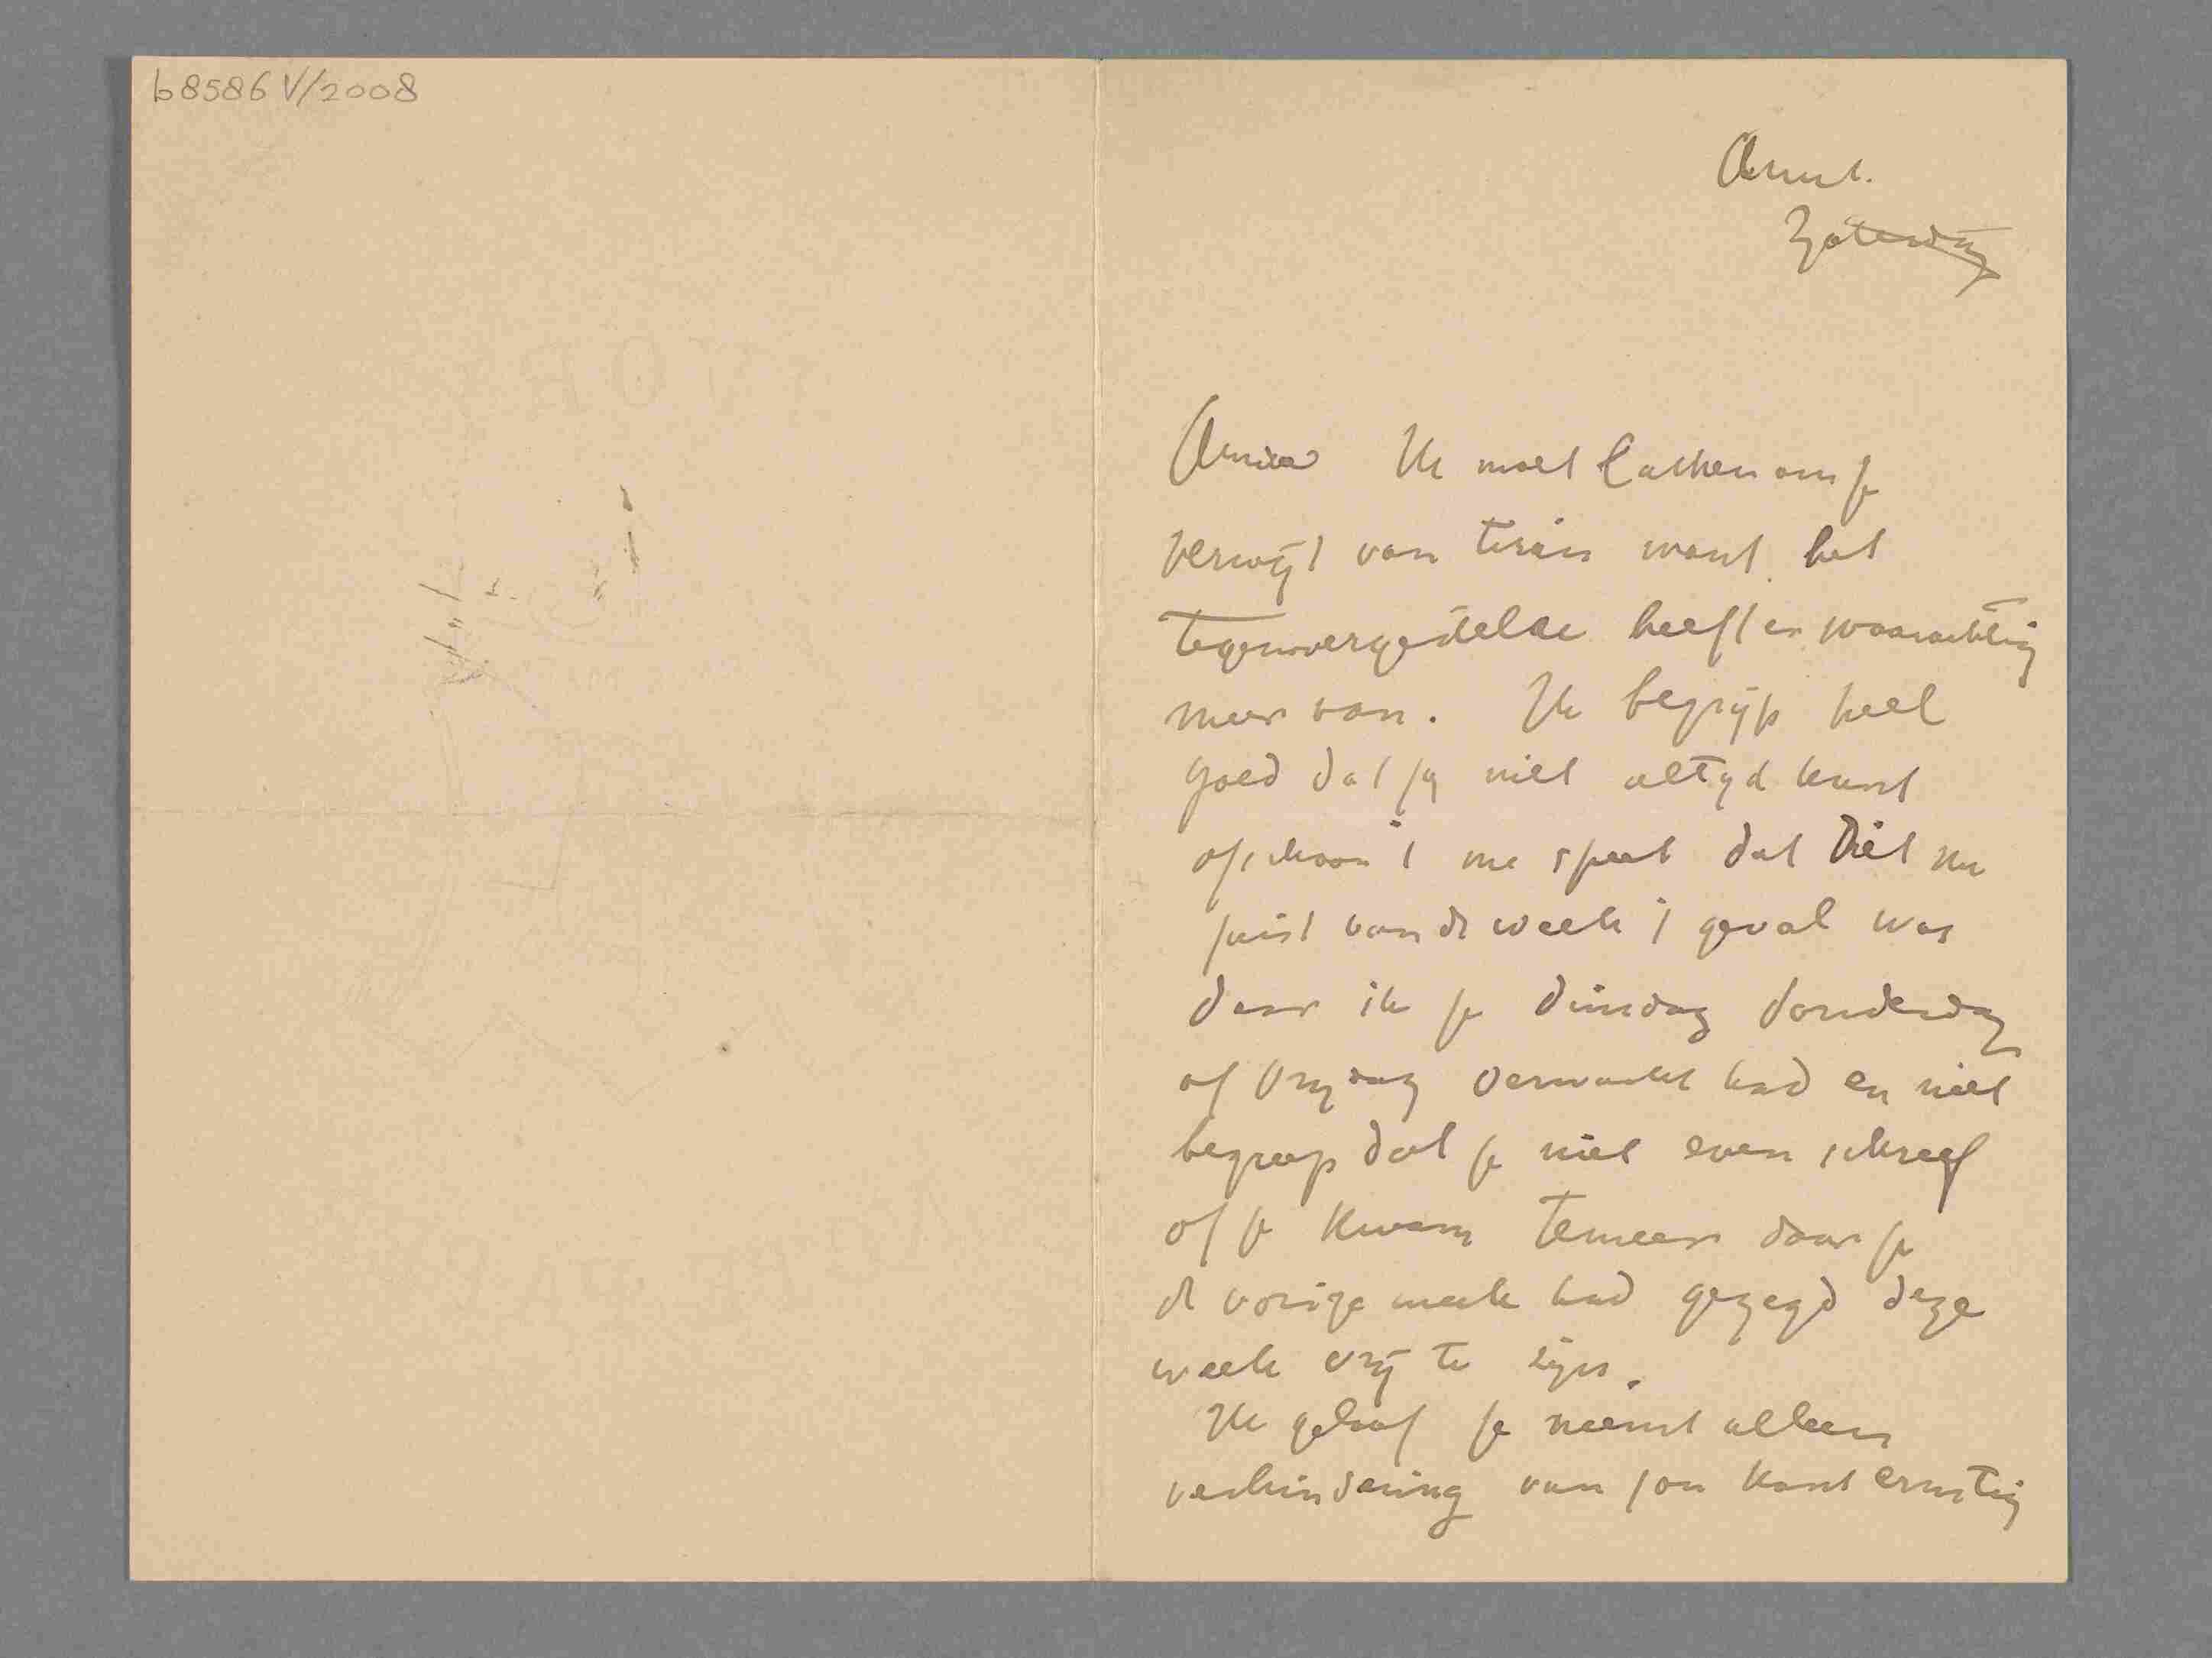 b8586 V/2008
Amst.
Zaterdag
Amice Ik moet lachen om je
verwijt van want het
tegenovergestelde heeft er waarachtig
meer van. Ik begrijp heel
goed dat jy niet altyd kunt
ofschoon 't me speet dat dit nu
juist van de week 't geval was
daar ik je dinsdag donderdag
of Vrydag verwacht had en niet
begreep dat je niet even schreef
of je kwam temeer daar je
de vorige week had gezegd deze
week vrij te zijn.
Ik geloof je neemt alleen
verhindering van jou kant ernstig